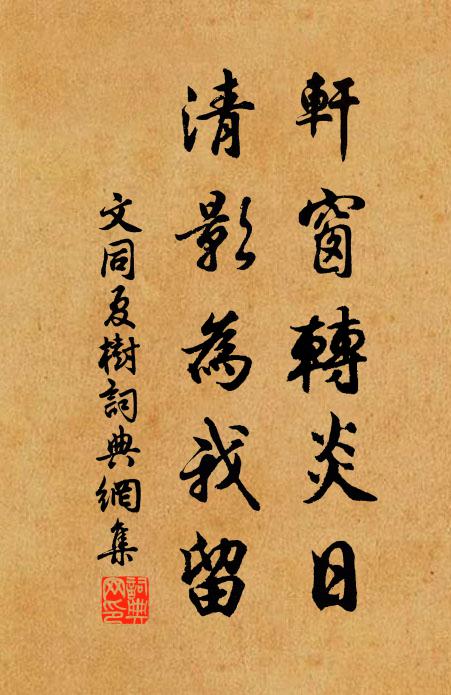 軒窗轉炎日
清影為我留
文同夏樹詞典網集
詞典
网印